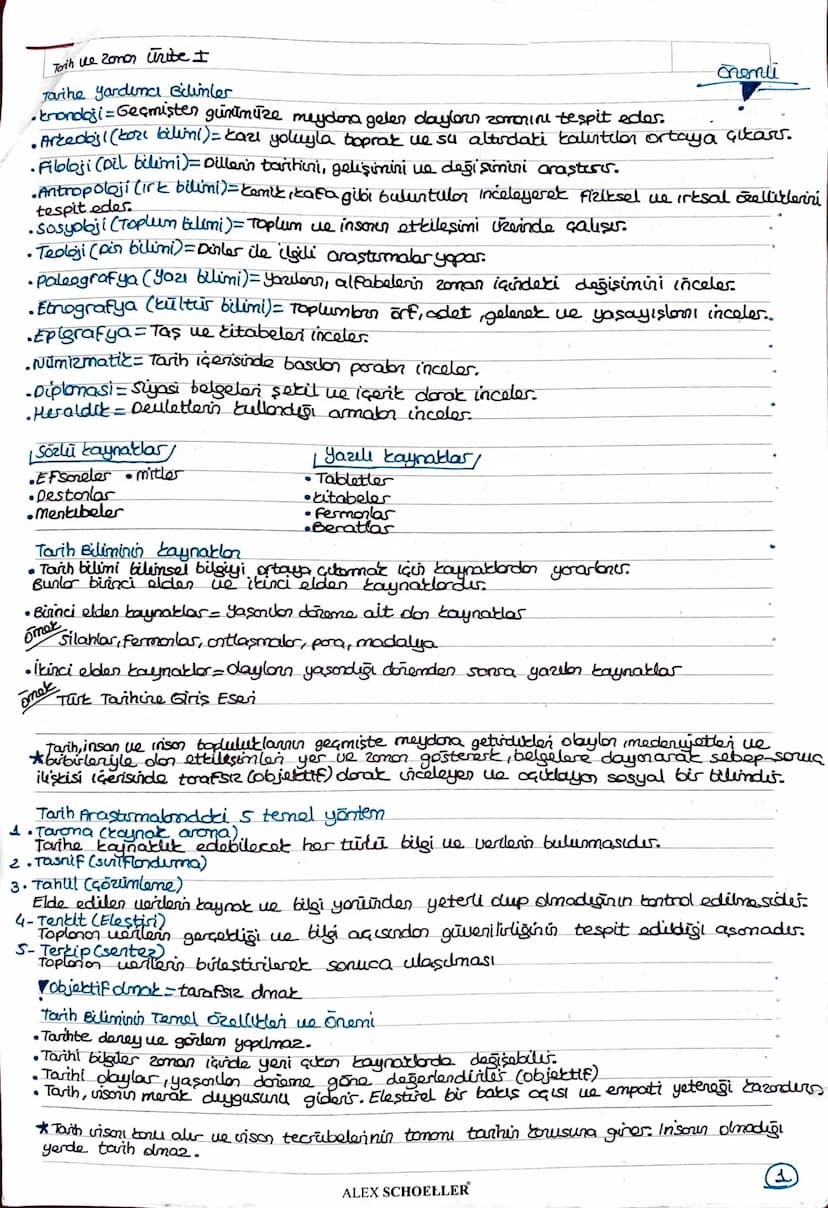 Tarih ve zaman Ünite I
önemli
Tarihe Yardımcı Bilimler
• Kronoloji = Geçmişten günümüze meydana gelen olayların zamanını tespit eder.
• Arkeoloji (Kazı bilimi) = Kazı yoluyla toprak ve su altındaki kalıntıları ortaya çıkarır.
• Filoloji (Dil bilimi) = Dillerin tarihini, gelişimini ve değişimini araştırır.
• Antropoloji (ırk bilimi) = Kemik, kafa gibi buluntuları inceleyerek fiziksel ve ırksal özelliklerini
tespit eder.
• Sosyoloji (Toplum bilimi) = Toplum ve insanın etkileşimi üzerinde çalışır.
• Teoloji (Din bilimi) = Dinler ile ilgili araştırmalar yapar.
• Paleografya (Yazı bilimi) = Yazıların, alfabelerin zaman içindeki değişimini inceler.
• Etnografya (Kültür bilimi) = Toplumların örf, adet, gelenek ve yaşayışlarını inceler.
• Epigrafya = Taş ve kitabeleri inceler.
• Nümizmatik = Tarih içerisinde basılan paraları inceler.
• Diplomasi = Siyasi belgeleri şekil ve içerik olarak inceler.
• Heraldik = Devletlerin kullandığı armaları inceler.
Sözlü Kaynaklar
• Efsaneler • mitler
• Destanlar
• Menkıbeler
Yazılı Kaynaklar
• Tabletler
• Kitabeler
• Fermanlar
• Beratlar
Tarih Biliminin Kaynakları
• Tarih bilimi bilimsel bilgiyi ortaya çıkarmak için kaynaklardan yararlanır.
Bunlar birinci elden ve ikinci elden kaynaklardır.
• Birinci elden kaynaklar = Yaşanılan döneme ait olan kaynaklar
örnek Silahlar, fermanlar, antlaşmalar, para, madalya
• İkinci elden kaynaklar = olayların yaşandığı dönemden sonra yazılan kaynaklar
örnek Türk Tarihine Giriş Eseri
Tarih, insan ve insan topluluklarının geçmişte meydana getirdikleri olayları, medeniyetleri ve
★ birbirleriyle olan etkileşimleri yer ve zaman göstererek, belgelere dayanarak sebep-sonuç
ilişkisi içerisinde tarafsız (objektif) olarak inceleyen ve açıklayan sosyal bir bilimdir.
Tarih Araştırmalarındaki 5 temel yöntem
1. Tarama (Kaynak arama)
Tarihe kaynaklık edebilecek her türlü bilgi ve verilerin bulunmasıdır.
2. Tasnif (Sınıflandırma)
3. Tahlil (Çözümleme)
Elde edilen verilerin kaynak ve bilgi yönünden yeterli olup olmadığının kontrol edilmesidir.
4- Tenkit (Eleştiri)
Toplanan verilerin gerçekliği ve bilgi açısından güvenilirliğinin tespit edildiği aşamadır.
5- Terkip (sentez)
Toplanan verilerin birleştirilerek sonuca ulaşılması
Objektif olmak = tarafsız olmak
Tarih Biliminin Temel Özellikleri ve Önemi
• Tarihte deney ve gözlem yapılmaz.
• Tarihi bilgiler zaman içinde yeni çıkan kaynaklarda değişebilir.
• Tarihi olaylar, yaşanılan döneme göre değerlendirilir (objektif)
• Tarih, insanın merak duygusunu giderir. Eleştirel bir bakış açısı ve empati yeteneği kazandırır.
★ Tarih insanı konu alır ve insan tecrübelerinin tamamı tarihin konusuna girer. İnsanın olmadığı
yerde tarih olmaz.
1
ALEX SCHOELLER